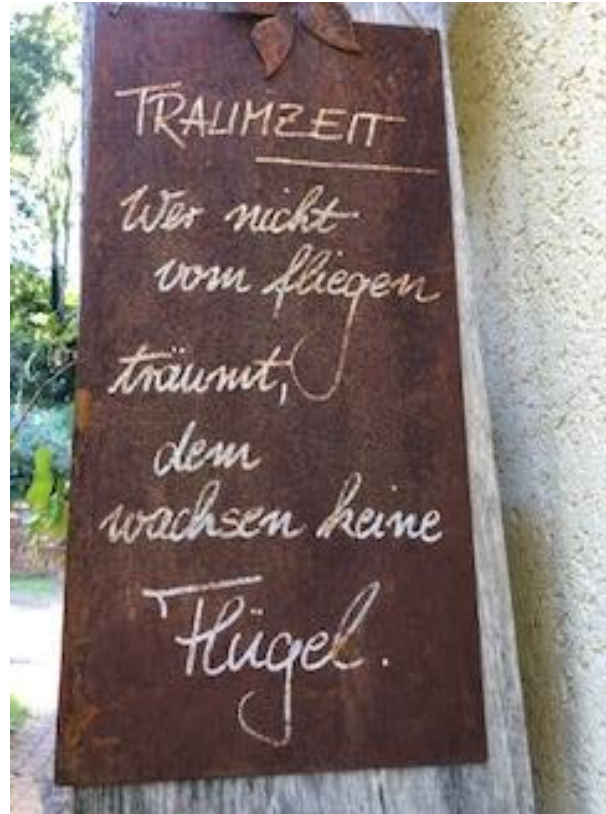 TRAUMZEIT
Wer nicht
vom fliegen
träumt,
dem
wachsen keine
Flügel.